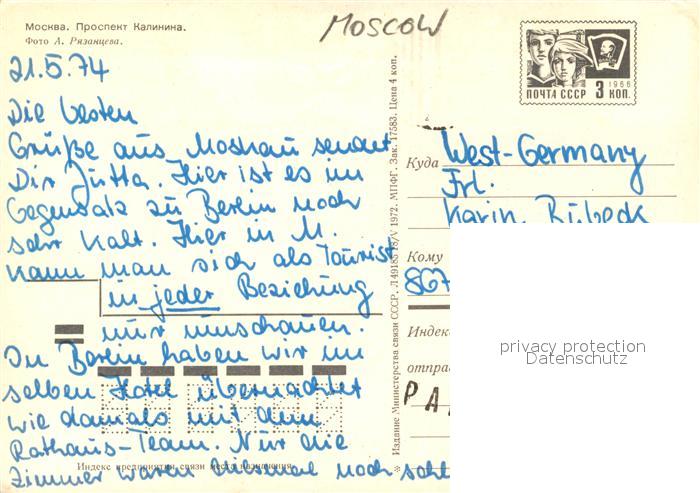 Москва. Проспект Калинина.
Фото А. Рязанцева.
MOSCOW
21.5.74
Die besten
Grüße aus Moskau sendet
Dir Jutta. Hier ist es im
Gegensatz zu Berlin noch
sehr kalt. Hier in M.
kann man sich als Tourist
in jeder Beziehung
nur umschauen.
In Berlin haben wir im
selben Hotel übernachtet
wie damals mit dem
Rathaus-Team. Nur die
Zimmer waren diesmal noch
Индекс предприятия связи места назначения
Издание Министерства связи СССР. 1972. МПФГ. Зак. 17583. Цена 4 коп.
ПОЧТА СССР 3 КОП.
1966
Куда West-Germany
Frl.
Karin Rübeck
Кому
867
Индек
отправ
PA
privacy protection
Datenschutz